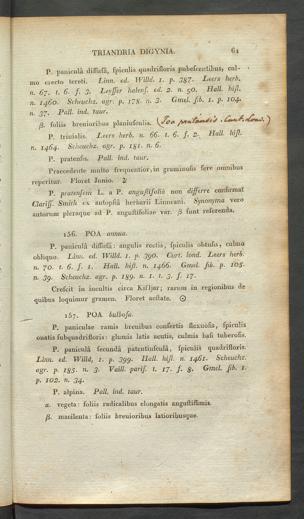 TRIANDRIA DIGYNIA. 61
P. paniculâ diffusâ, spiculis quadrifloris pubescentibus, cul-
mo erecto tereti. Linn. ed. Willd. 1. p. 387. Leers herb.
n. 67. t. 6. f. 3. Leysser halens. ed. 2. n. 90. Hall. hist.
n. 1460. Scheuchz. agr. p. 178. n. 3. Gmel. sib. 1. p. 104.
n. 37. Pall. ind. taur.
β. foliis breuioribus planiusculis. (Poa pratensis. Curt. Lond.)
P. triuialis. Leers herb. n. 66. t. 6. f. 2. Hall. hist.
n. 1464. Scheuchz. agr. p. 181. n. 6.
P. pratensis. Pall. ind. taur.
Praecedente multo frequentior, in graminosis fere omnibus
reperitur. Floret Junio. ♃
P. pratensem L. a P. angustifoliâ non differre confirmat
Clariss. Smith ex autopsiâ herbarii Linneani. Synonyma vero
autorum pleraque ad P. angustifoliae var. β sunt referenda.
156. POA annua.
P. paniculâ diffusâ: angulis rectis, spiculis obtusis, culmo
obliquo. Linn. ed. Willd. 1. p. 390. Curt. lond. Leers herb.
n. 70. t. 6. f. 1. Hall. hist. n. 1466. Gmel. sib. p. 105.
n. 39. Scheuchz. agr. p. 189. n. 1. t. 3. f. 17.
Crescit in incultis circa Kisljar; rarum in regionibus de
quibus loquimur gramen. Floret aestate. ☉
157. POA bulbosa.
P. paniculae ramis breuibus confertis flexuosis, spiculis
ouatis subquadrifloris: glumis latis acutis, culmis basi tuberosis.
P. paniculâ secundâ patentiusculâ, spiculis quadrifloris.
Linn. ed. Willd. 1. p. 399. Hall. hist. n. 1461. Scheuchz.
agr. p. 183. n. 3. Vaill. paris. t. 17. f. 8. Gmel. sib. 1.
p. 102. n. 34.
P. alpina. Pall. ind. taur.
α. vegeta: foliis radicalibus elongatis angustissimis.
β. macilenta: foliis breuioribus latioribusque.